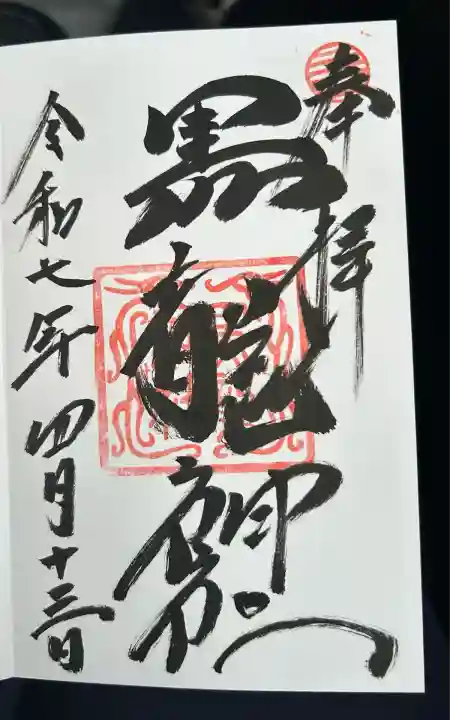 奉拝
黒龍
令和七年四月十三日